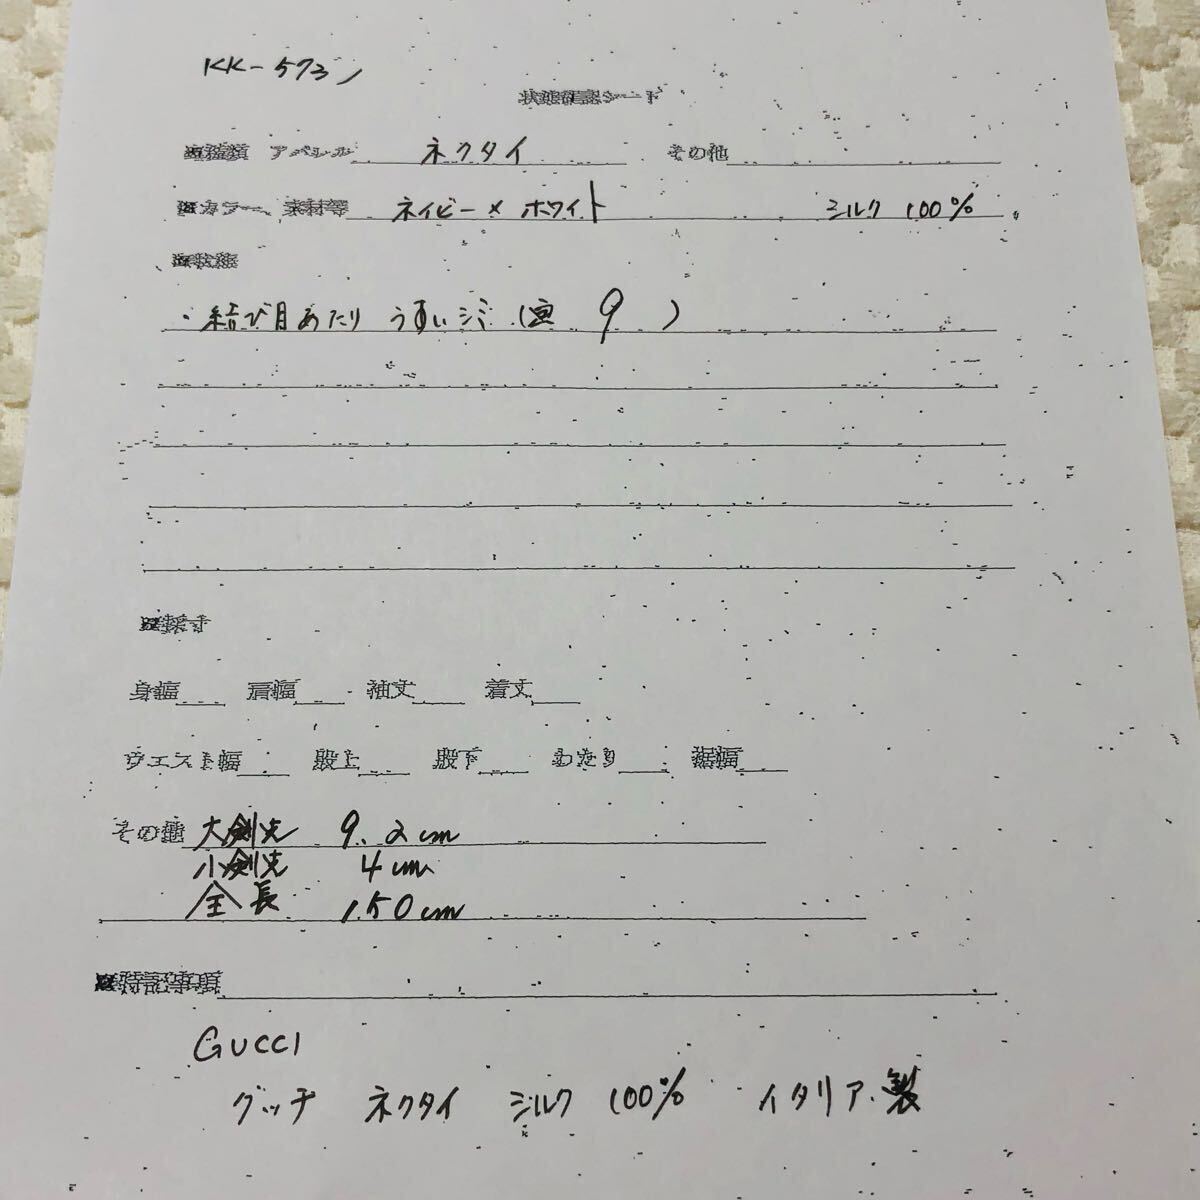 KK-573ノ
状態確認シート
アパレル ネクタイ その他
カラー、素材等 ネイビー×ホワイト シルク 100%
※状態
・結び目あたり うすいシミ (画 9 )
※採寸
身幅 肩幅 袖丈 着丈
ウエスト幅 股上 股下 わたり 裾幅
その他 大剣先 9.2cm
小剣先 4cm
全長 150cm
※特記事項
GUCCI
グッチ ネクタイ シルク 100% イタリア製